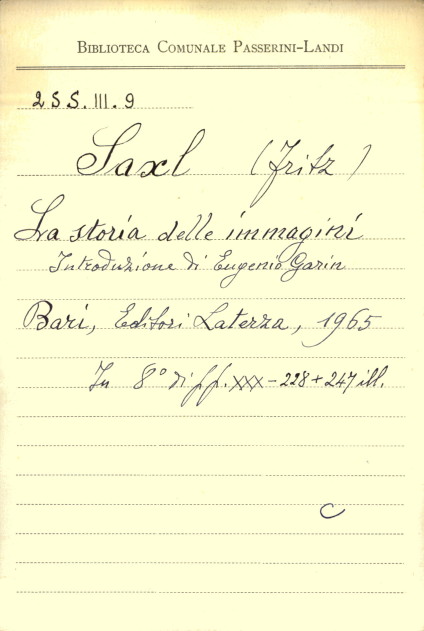 BIBLIOTECA COMUNALE PASSERINI-LANDI
2SS.III.9
Saxl (Fritz)
La storia delle immagini
Introduzione di Eugenio Garin
Bari, Editori Laterza, 1965
In 8° di pp. XXX-228+247 ill.
C